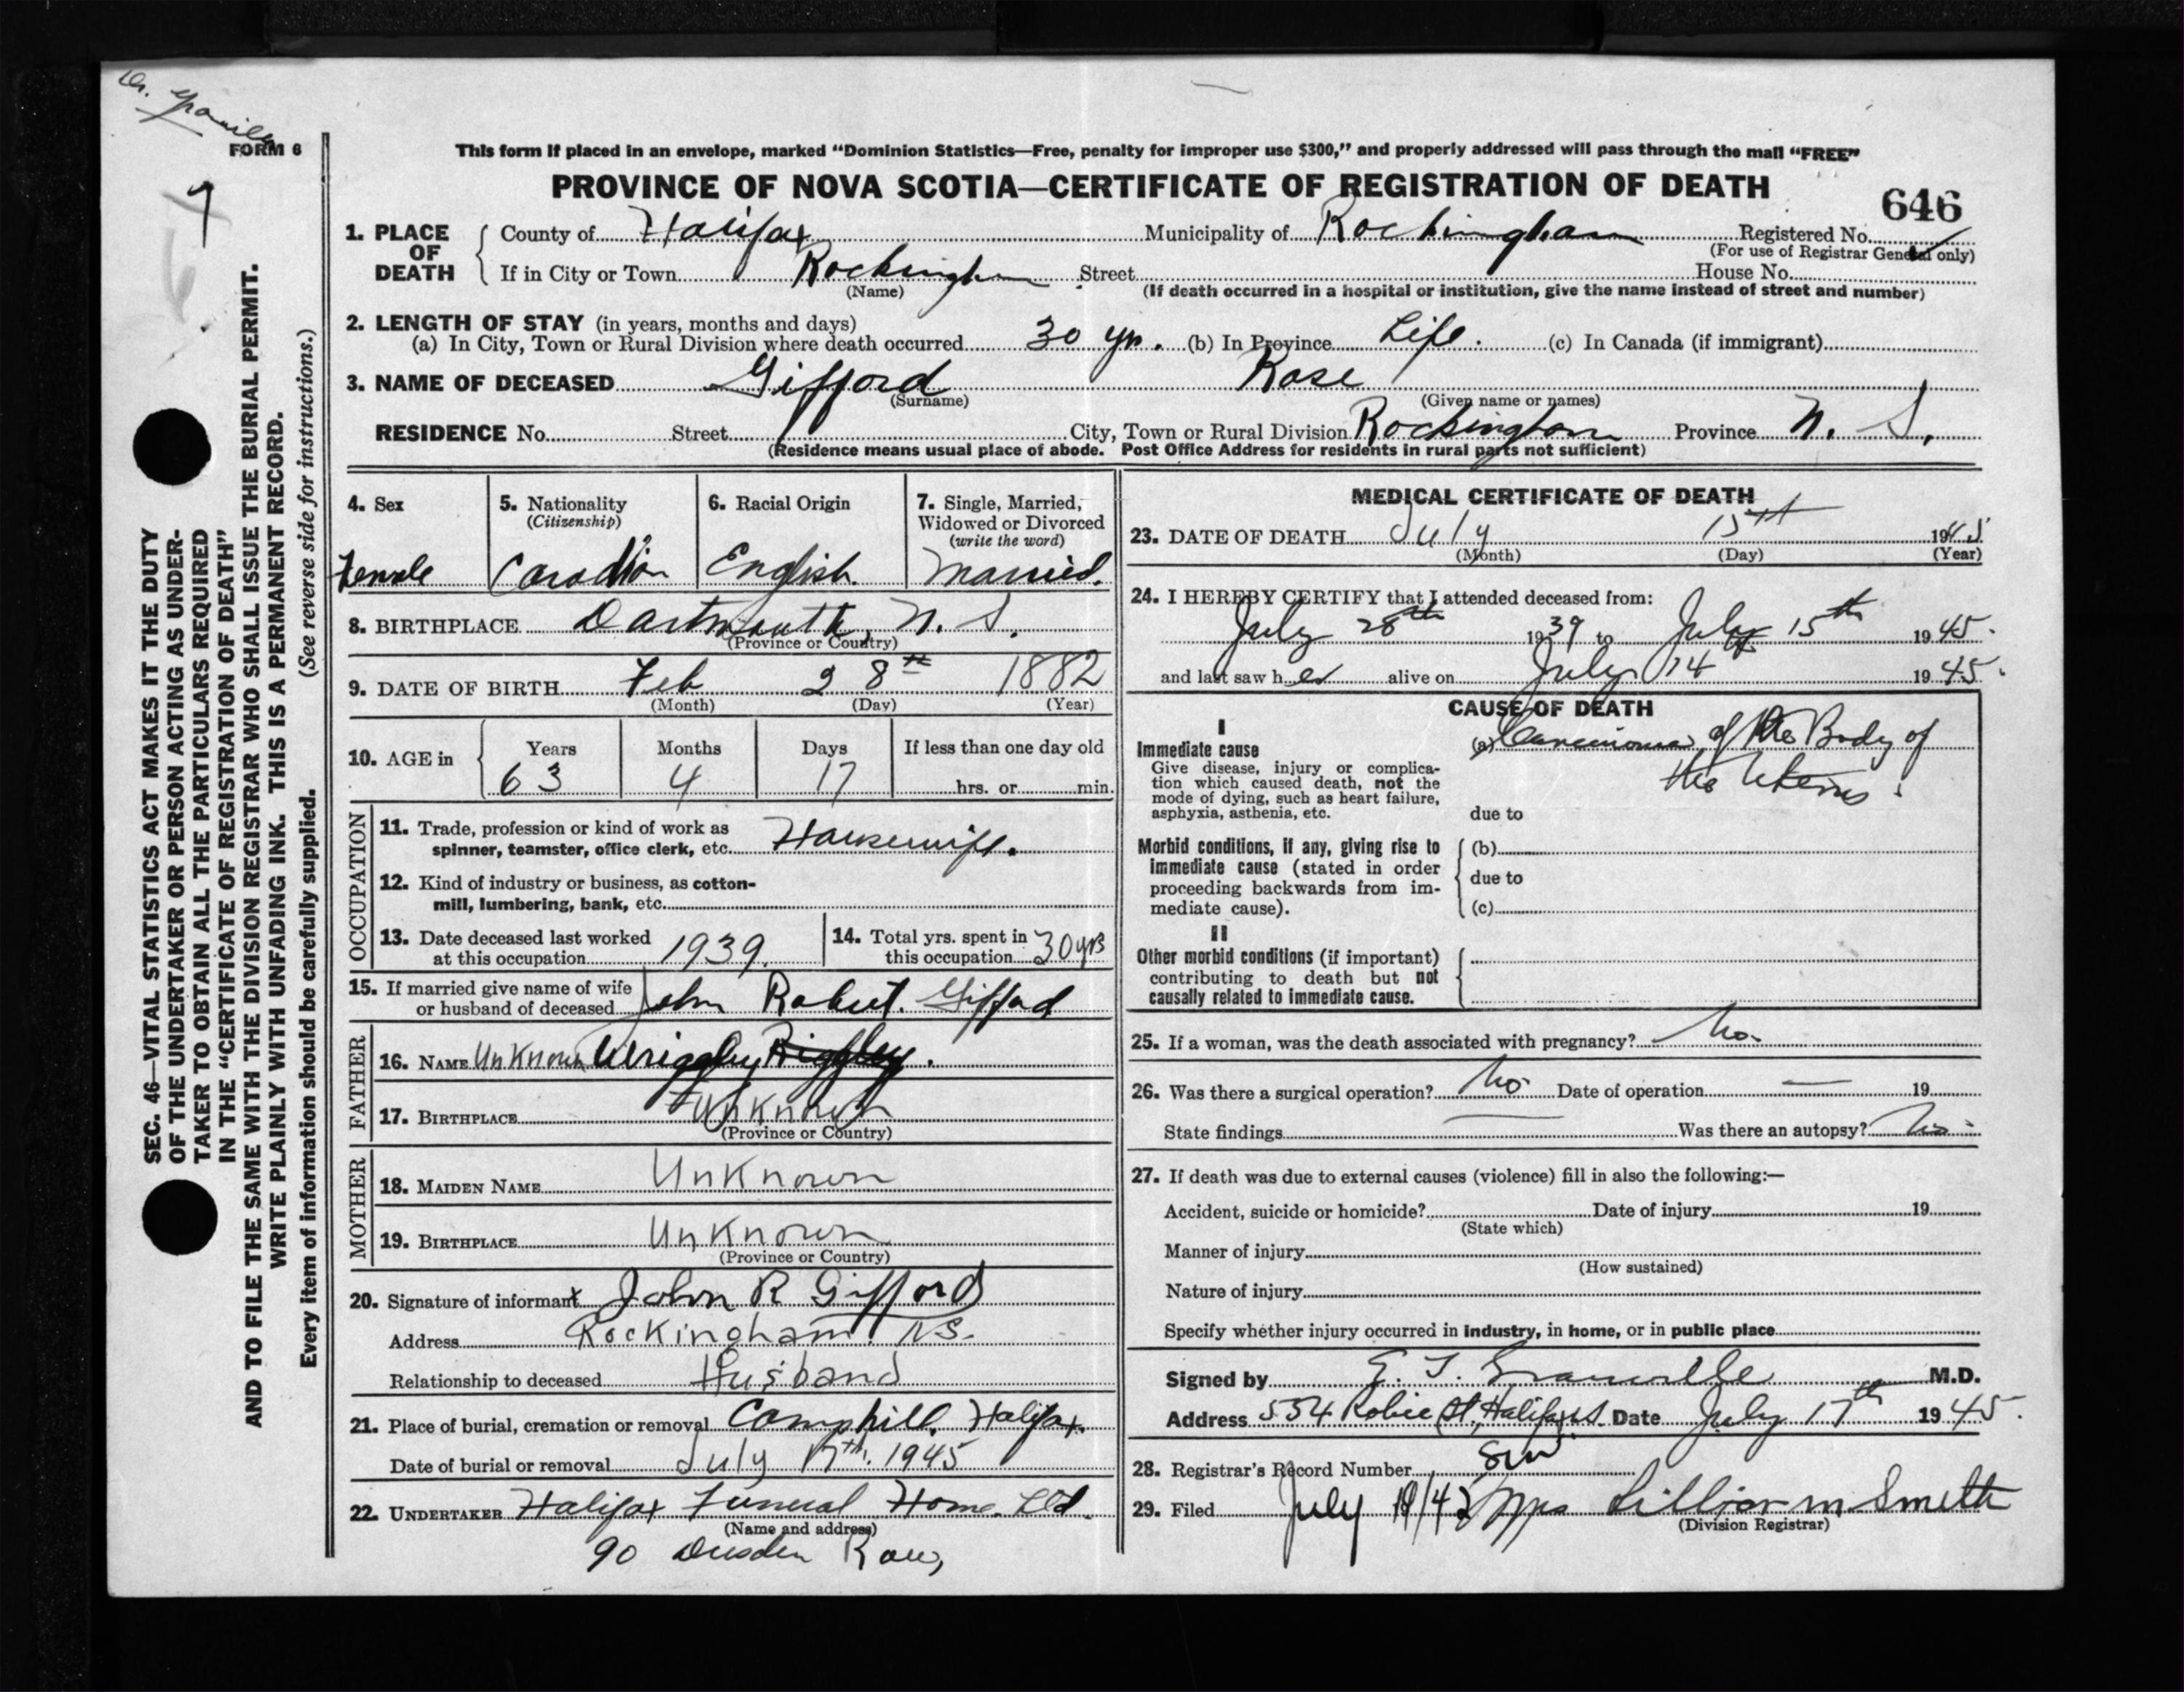 Dr. Granville
FORM 6
This form if placed in an envelope, marked "Dominion Statistics—Free, penalty for improper use $300," and properly addressed will pass through the mail "FREE"
PROVINCE OF NOVA SCOTIA—CERTIFICATE OF REGISTRATION OF DEATH
646
1. PLACE OF DEATH
County of Halifax Municipality of Rockingham Registered No.
(For use of Registrar General only)
If in City or Town Rockingham Street House No.
(Name) (If death occurred in a hospital or institution, give the name instead of street and number)
2. LENGTH OF STAY (in years, months and days)
(a) In City, Town or Rural Division where death occurred 30 yrs. (b) In Province Life. (c) In Canada (if immigrant)
3. NAME OF DECEASED Gifford Rose
(Surname) (Given name or names)
RESIDENCE No. Street City, Town or Rural Division Rockingham Province N. S.
(Residence means usual place of abode. Post Office Address for residents in rural parts not sufficient)
4. Sex
Female
5. Nationality
(Citizenship)
Canadian
6. Racial Origin
English
7. Single, Married,
Widowed or Divorced
(write the word)
Married.
8. BIRTHPLACE Dartmouth, N. S.
(Province or Country)
9. DATE OF BIRTH Feb 28th 1882
(Month) (Day) (Year)
10. AGE in
Years Months Days If less than one day old
63 4 17 hrs. or min.
OCCUPATION
11. Trade, profession or kind of work as
spinner, teamster, office clerk, etc. Housewife.
12. Kind of industry or business, as cotton-
mill, lumbering, bank, etc.
13. Date deceased last worked
at this occupation 1939.
14. Total yrs. spent in
this occupation 30 yrs
15. If married give name of wife
or husband of deceased John Robert. Gifford
FATHER
16. NAME Unknown Wriggley Riggley.
17. BIRTHPLACE Unknown
(Province or Country)
MOTHER
18. MAIDEN NAME Unknown
19. BIRTHPLACE Unknown
(Province or Country)
20. Signature of informant x John R Gifford
Address Rockingham. N.S.
Relationship to deceased Husband
21. Place of burial, cremation or removal Camphill, Halifax.
Date of burial or removal July 17th. 1945
22. UNDERTAKER Halifax Funeral Home. Ltd.
(Name and address)
90 Dresden Row,
MEDICAL CERTIFICATE OF DEATH
23. DATE OF DEATH July 15th 1945
(Month) (Day) (Year)
24. I HEREBY CERTIFY that I attended deceased from:
July 28th 1939 to July 15th 1945.
and last saw her alive on July 14 1945.
CAUSE OF DEATH
I
Immediate cause
Give disease, injury or complica-
tion which caused death, not the
mode of dying, such as heart failure,
asphyxia, asthenia, etc.
(a) Carcinoma of the Body of
the Uterus.
due to
Morbid conditions, if any, giving rise to
immediate cause (stated in order
proceeding backwards from im-
mediate cause).
(b)
due to
(c)
II
Other morbid conditions (if important)
contributing to death but not
causally related to immediate cause.
25. If a woman, was the death associated with pregnancy? No.
26. Was there a surgical operation? No. Date of operation — 19
State findings — Was there an autopsy? No.
27. If death was due to external causes (violence) fill in also the following:—
Accident, suicide or homicide? Date of injury 19
(State which)
Manner of injury
(How sustained)
Nature of injury
Specify whether injury occurred in industry, in home, or in public place
Signed by E. T. Granville M.D.
Address 554 Robie St., Halifax N.S. Date July 17th 1945.
28. Registrar's Record Number
29. Filed July 18/45 Mrs Lillian M. Smith
(Division Registrar)
SEC. 46—VITAL STATISTICS ACT MAKES IT THE DUTY
OF THE UNDERTAKER OR PERSON ACTING AS UNDER-
TAKER TO OBTAIN ALL THE PARTICULARS REQUIRED
IN THE "CERTIFICATE OF REGISTRATION OF DEATH"
AND TO FILE THE SAME WITH THE DIVISION REGISTRAR WHO SHALL ISSUE THE BURIAL PERMIT.
WRITE PLAINLY WITH UNFADING INK. THIS IS A PERMANENT RECORD.
Every item of information should be carefully supplied. (See reverse side for instructions.)